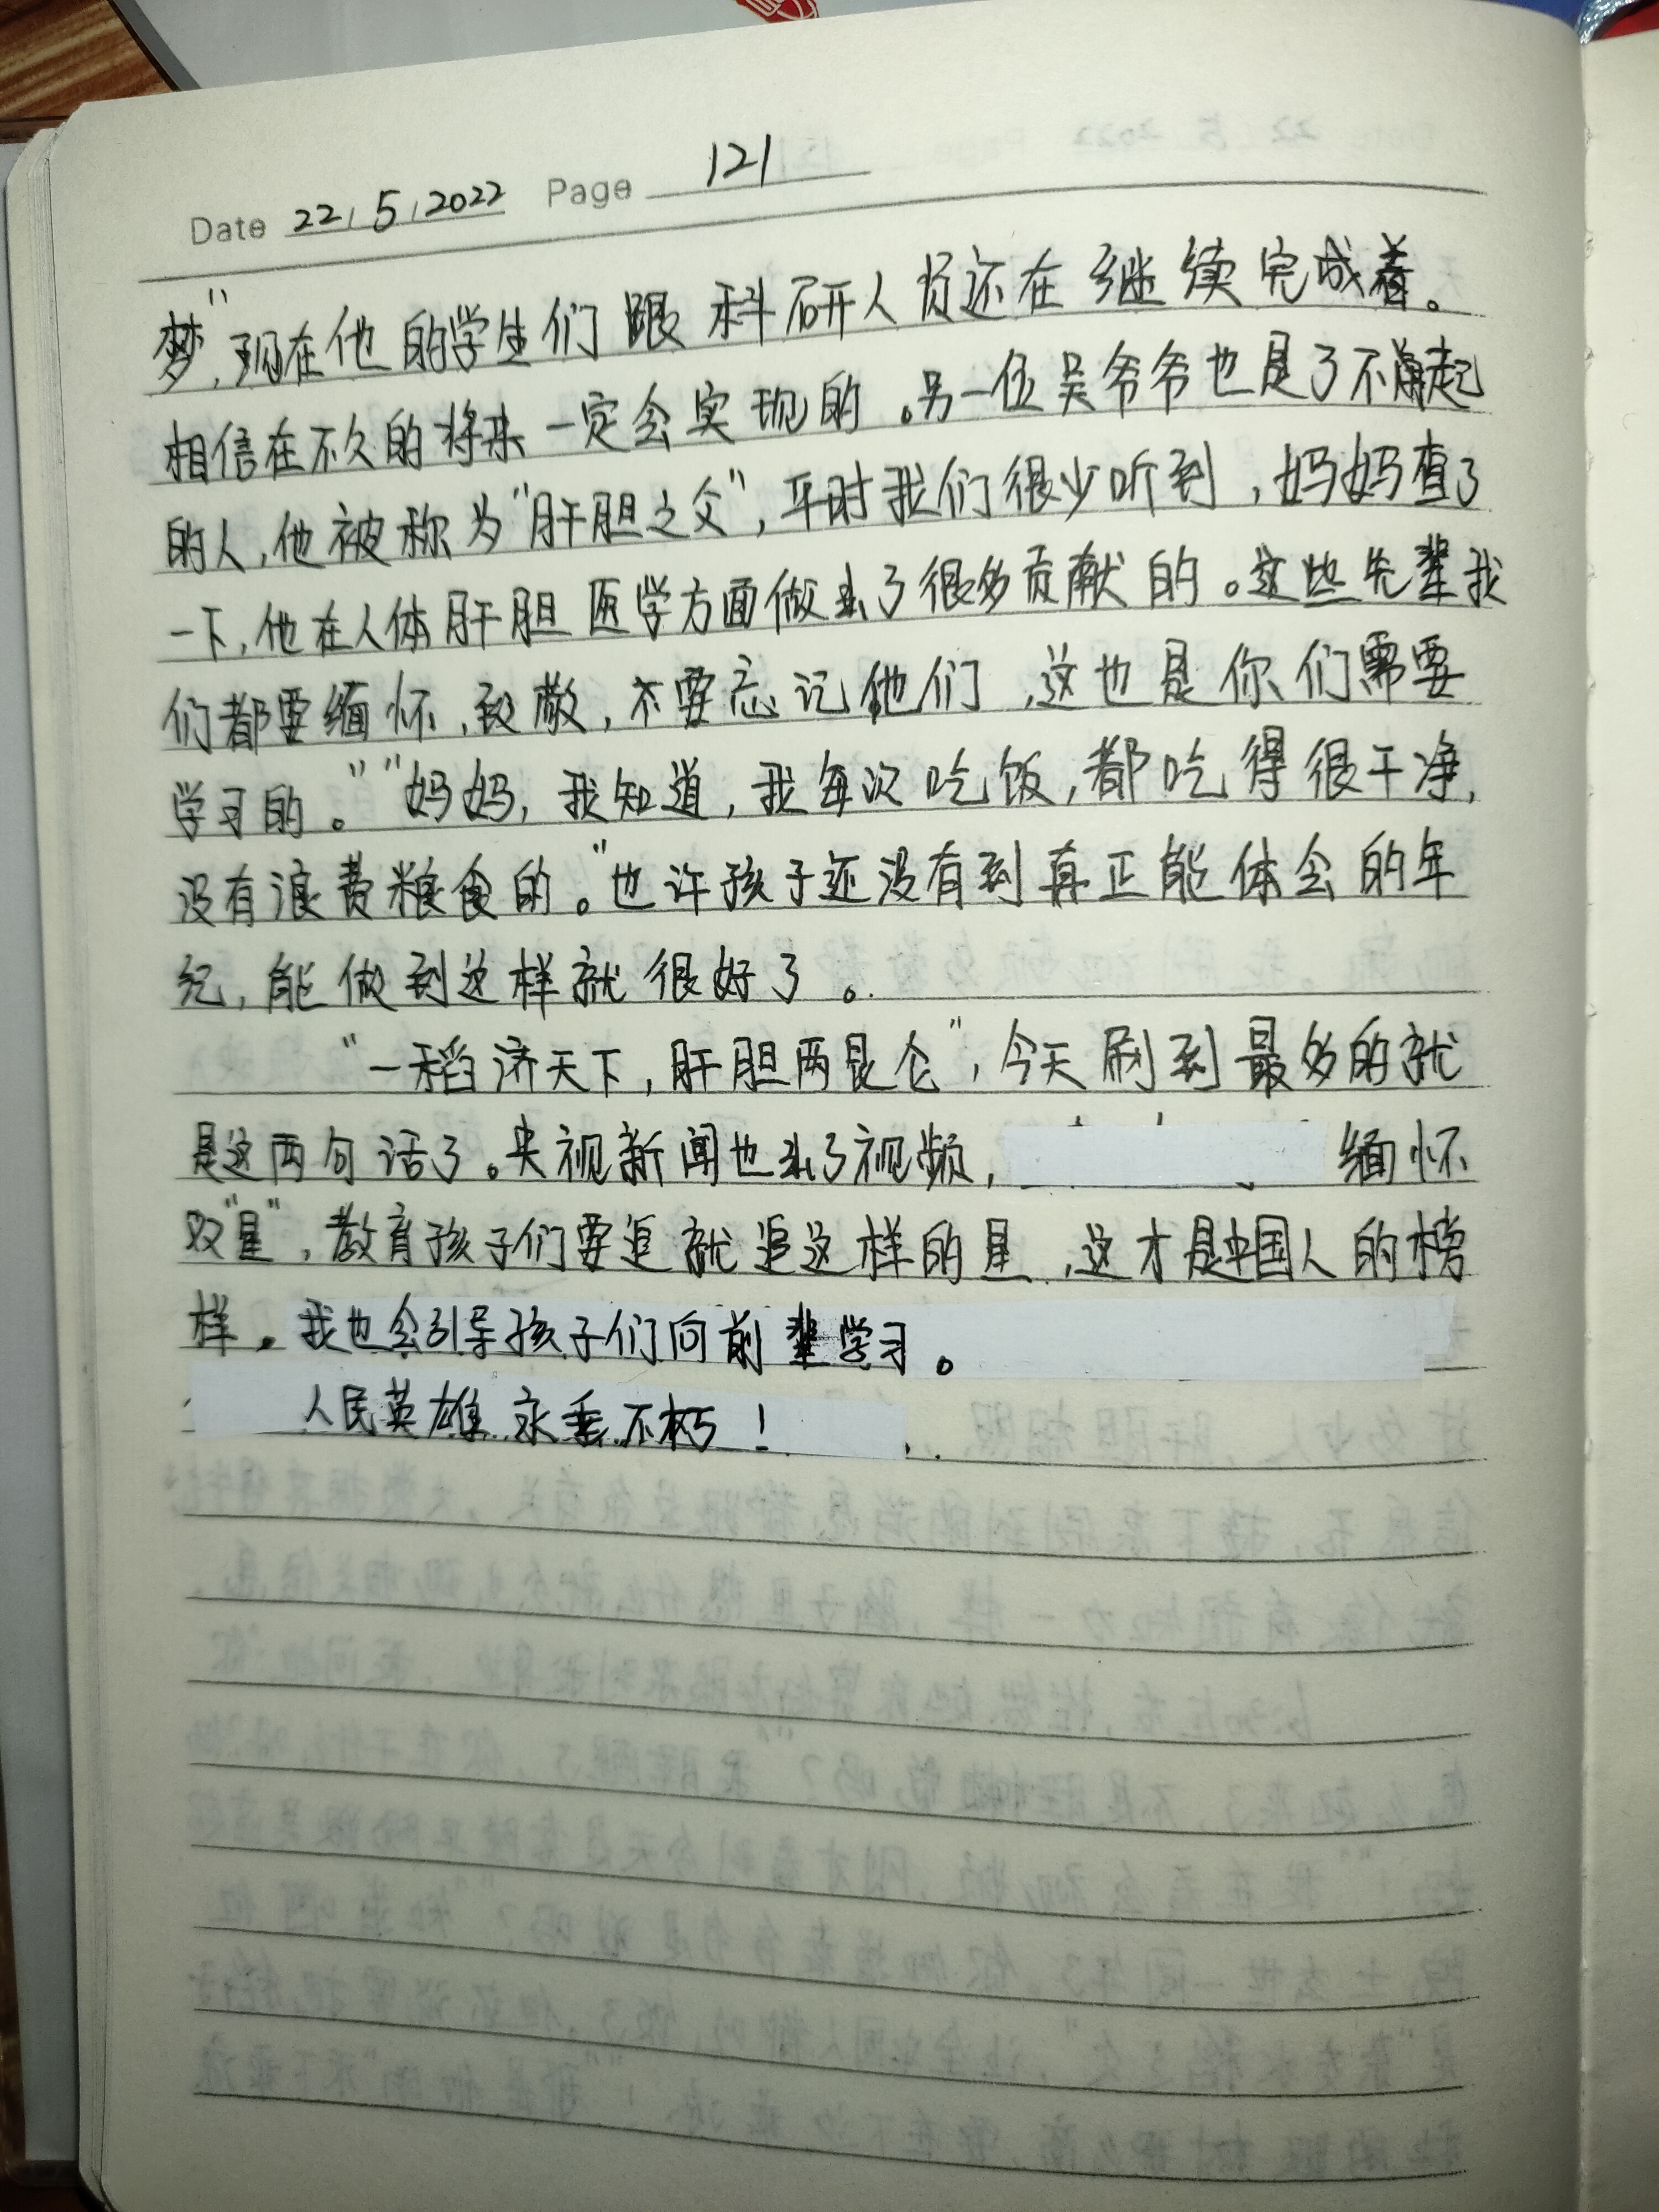 Date 22/5/2022 Page 121
梦”,现在他的学生们跟科研人员还在继续完成着。
相信在不久的将来一定会实现的。另一位吴爷爷也是了不起
的人,他被称为“肝胆之父”,平时我们很少听到,妈妈查了
一下,他在人体肝胆医学方面做出了很多贡献的。这些先辈我
们都要缅怀,致敬,不要忘记他们,这也是你们需要
学习的。”“妈妈,我知道,我每次吃饭,都吃得很干净,
没有浪费粮食的。”也许孩子还没有到真正能体会的年
纪,能做到这样就很好了。
“一稻济天下,肝胆两昆仑”,今天刷到最多的就
是这两句话了。央视新闻也出了视频,缅怀
双“星”,教育孩子们要追就追这样的星,这才是中国人的榜
样。我也会引导孩子们向前辈学习。
人民英雄永垂不朽!